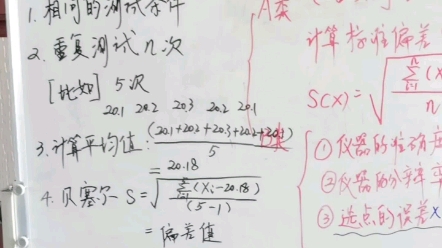 1. 相同的测试条件
2. 重复测试n次
[比如] 5次
20.1 20.2 20.3 20.2 20.1
3. 计算平均值: (20.1+20.2+20.3+20.2+20.1)/5
= 20.18
4. 贝塞尔 S = √(Σ(Xi-20.18)/(5-1))
= 偏差值
A类
计算标准偏差
S(X) = √(Σ(X
n
B类
①仪器的准确
②仪器的分辨率
③选点的误差X